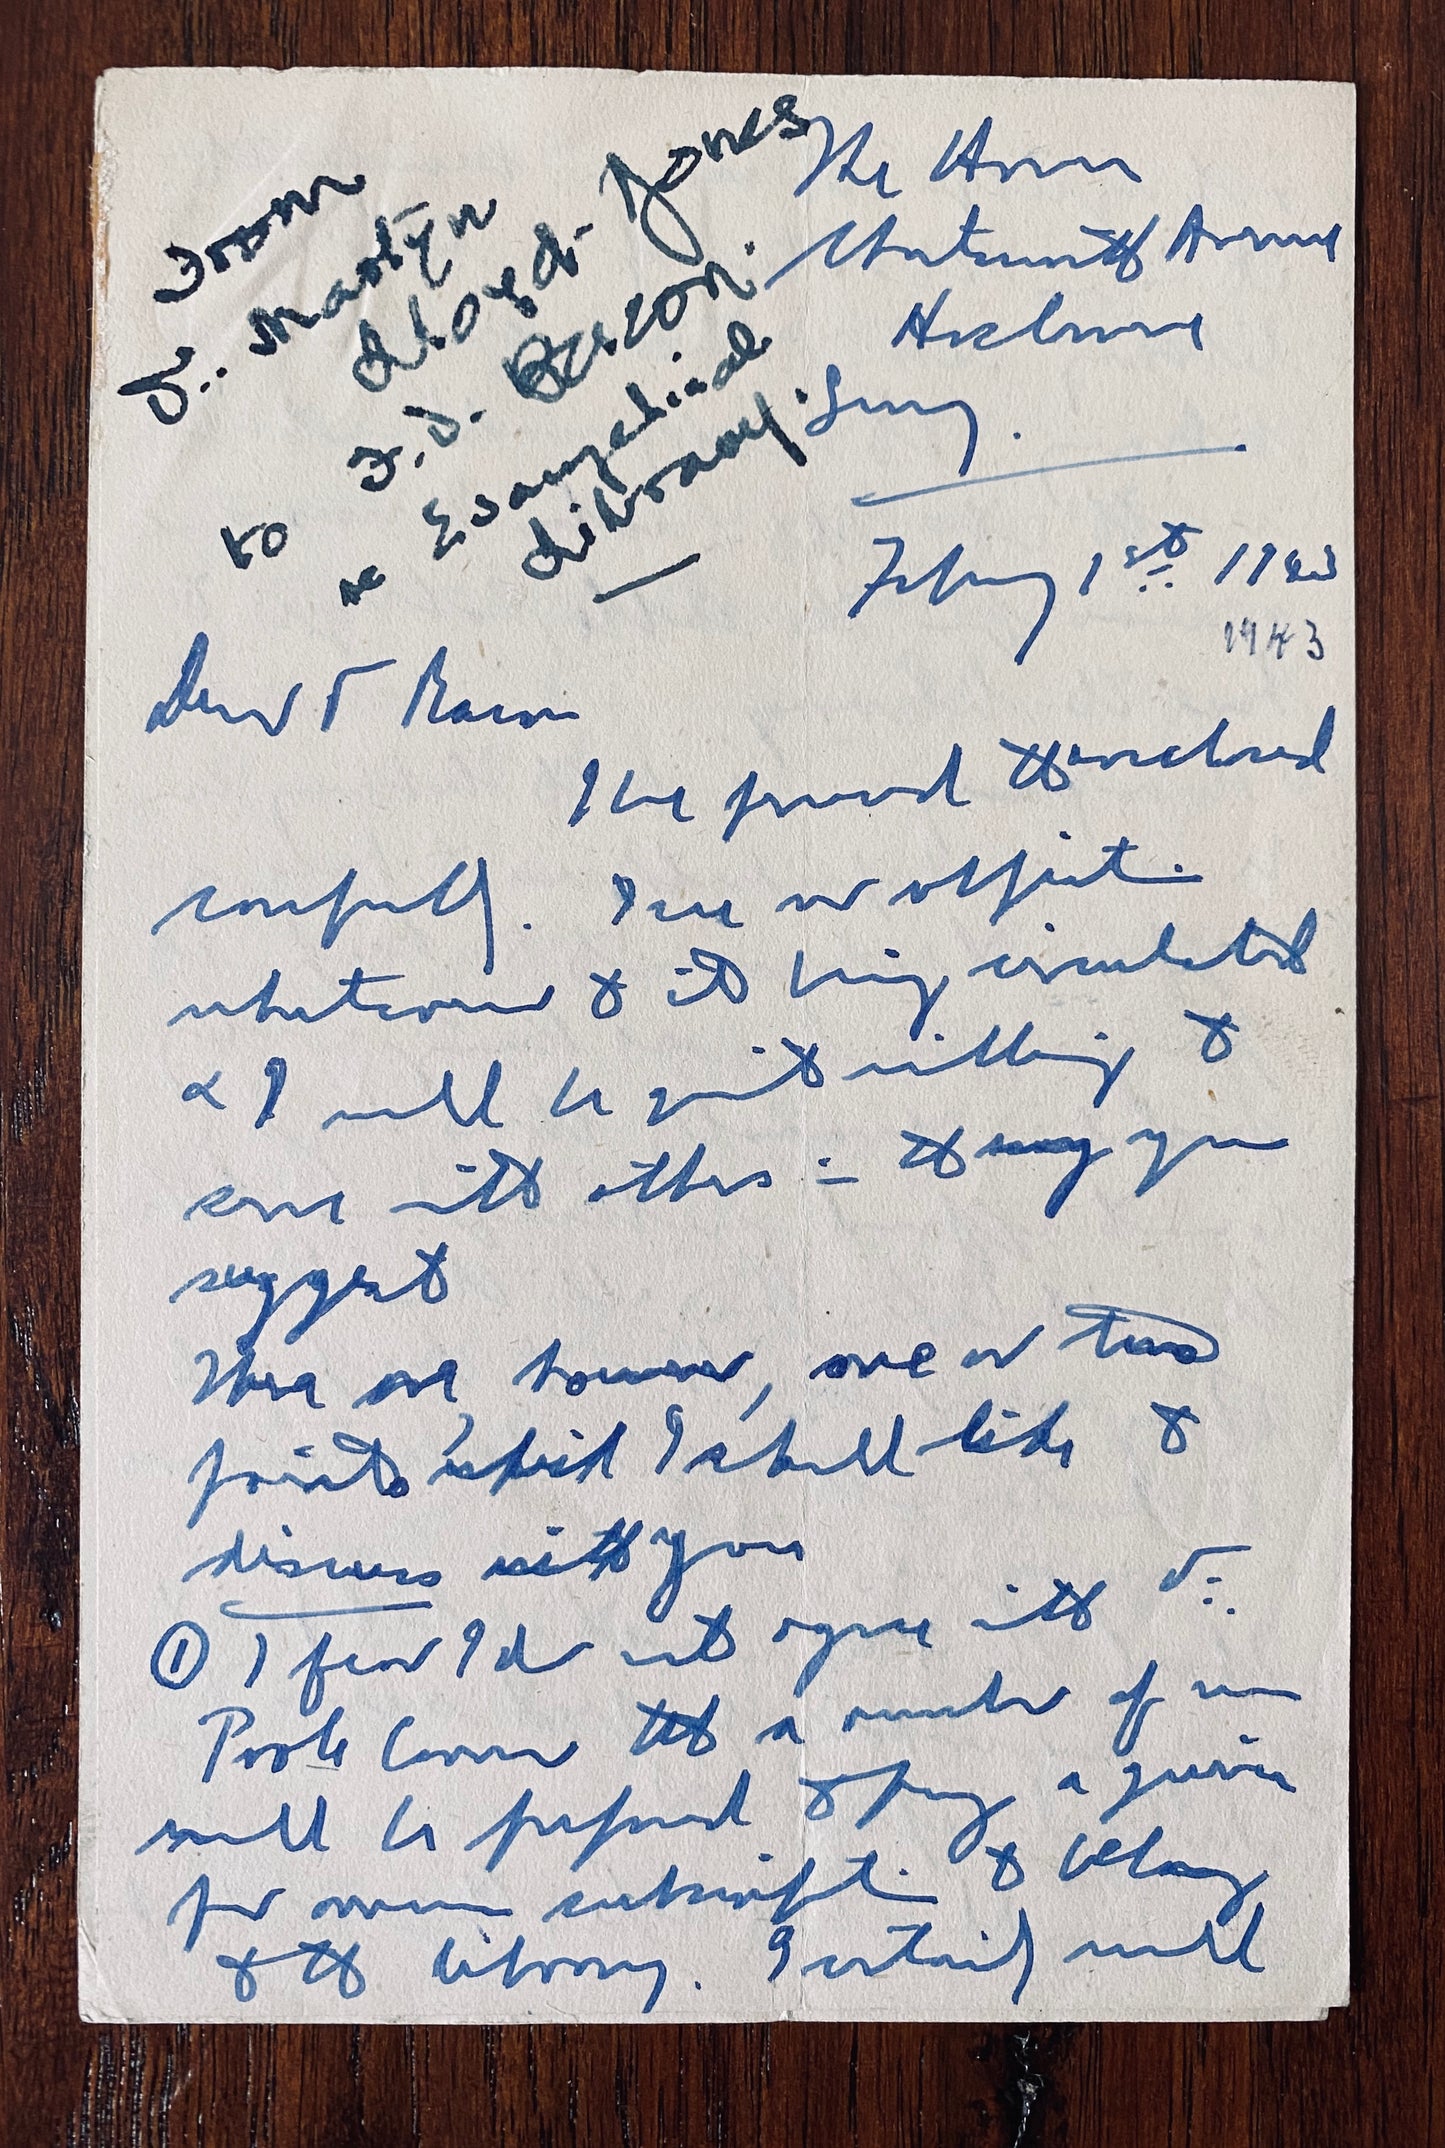 From
Dr. Martyn
Lloyd-Jones
to F.J. Bacon.
re Evangelical
Library.
The Haven
Chatsworth Avenue
Haslemere
Surrey.
February 1st 1943
1943
Dear Mr Bacon
I have perused the enclosed
carefully. I see no objection
whatsoever to it being circulated
& I will be quite willing to
serve with others in the way you
suggest
There are, however, one or two
points which I shall like to
discuss with you
① I fear I do not agree with Dr.
Poole Connor that a number of men
will be prepared to pay a guinea
for annual subscription & belong
to the library. I certainly will